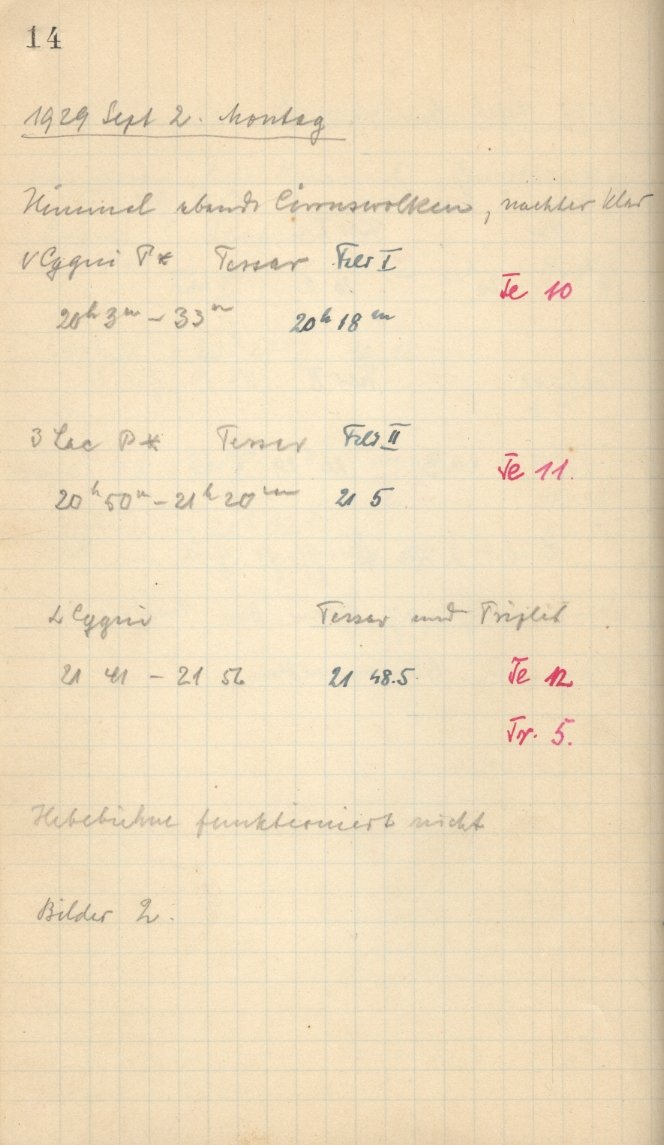 14
1929 Sept 2. Montag
Himmel abends Cirruswolken, nachher klar
γ Cygni P* Tessar Feld I
Te 10
20h 3m – 33m 20h 18m
3 Lac P* Tessar Feld II
Te 11.
20h 50m – 21h 20m 21 5
α Cygni Tessar und Triplet
21 41 – 21 56 21 48.5
Te 12
Tr. 5.
Hebebühne funktioniert nicht
Bilder 2.